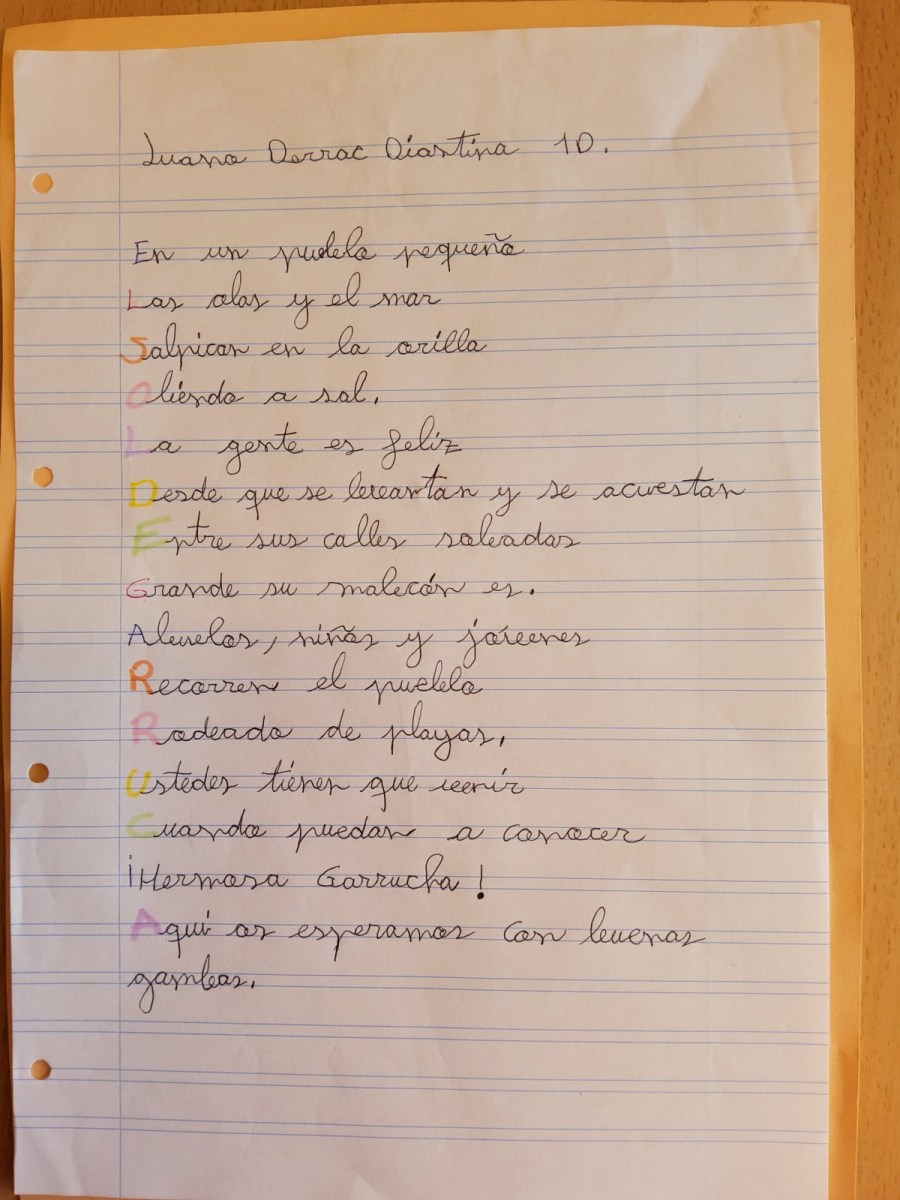 Luana Derrac Diantina 1D.
En un pueblo pequeño
Las olas y el mar
Salpican en la orilla
Oliendo a sal.
La gente es feliz
Desde que se levantan y se acuestan
Entre sus calles soleadas
Grande su malecón es.
Abuelos, niños y jóvenes
Recorren el pueblo
Rodeado de playas,
Ustedes tienen que venir
Cuando puedan a conocer
¡Hermosa Garrucha!
Aquí os esperamos con buenas
gambas.